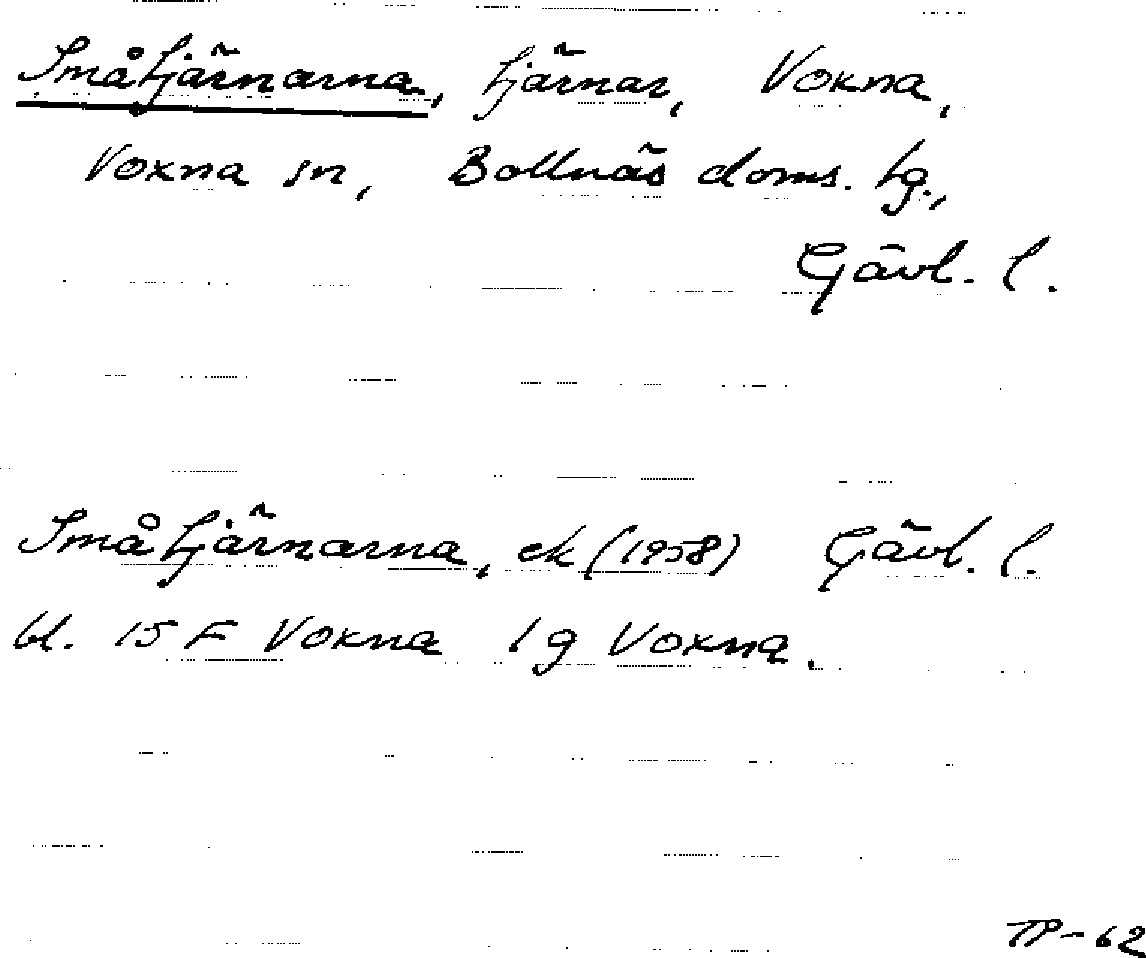 Småtjärnarna, tjärnar, Voxna,
Voxna sn, Bollnäs doms. tg.,
Gävl. l.
Småtjärnarna, ek (1958) Gävl. l.
bl. 15 F Voxna 1 g Voxna.
TP-62